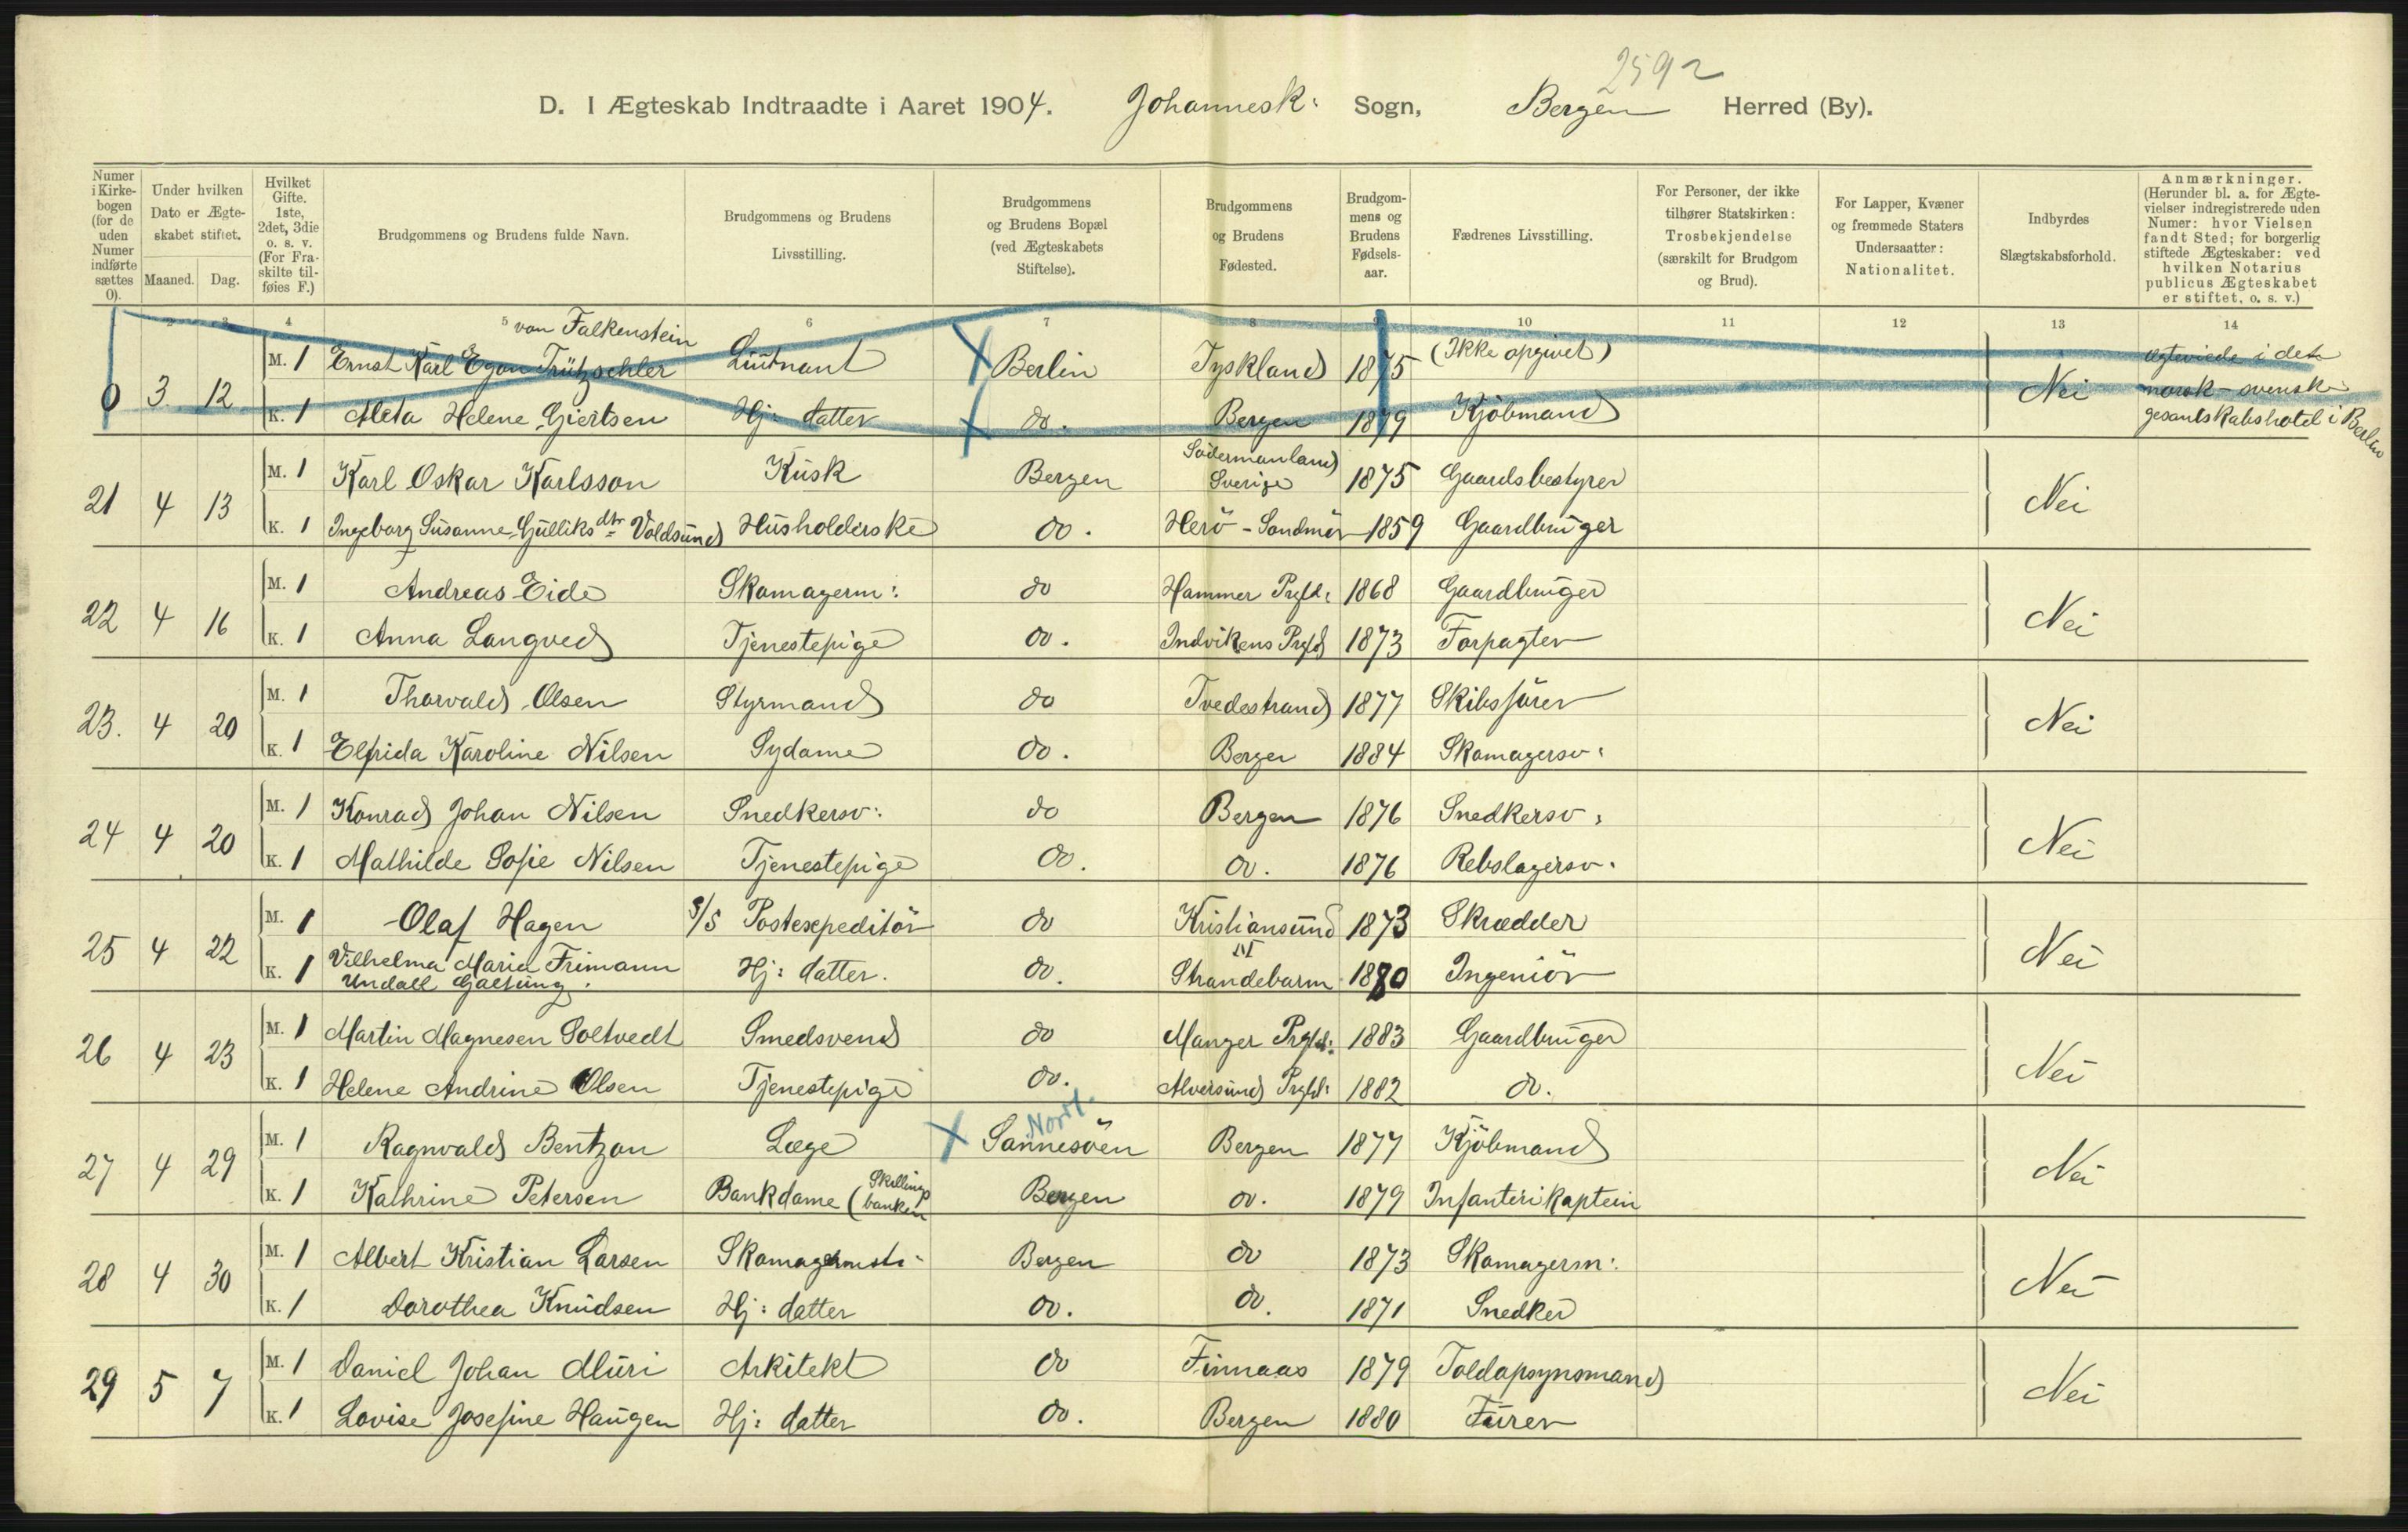 2592
D. I Ægteskab Indtraadte i Aaret 1904. Johannesk: Sogn, Bergen Herred (By).
Numer i Kirke-bogen (for de uden Numer indførte sættes 0).
Under hvilken Dato er Ægte-skabet stiftet.
Maaned. Dag.
Hvilket Gifte. 1ste, 2det, 3die o. s. v. (For Fra-skilte til-føies F.)
Brudgommens og Brudens fulde Navn.
Brudgommens og Brudens Livsstilling.
Brudgommens og Brudens Bopæl (ved Ægteskabets Stiftelse).
Brudgommens og Brudens Fødested.
Brudgom-mens og Brudens Fødsels-aar.
Fædrenes Livsstilling.
For Personer, der ikke tilhører Statskirken: Trosbekjendelse (særskilt for Brudgom og Brud).
For Lapper, Kvæner og fremmede Staters Undersaatter: Nationalitet.
Indbyrdes Slægtskabsforhold.
Anmærkninger. (Herunder bl. a. for Ægte-vielser indregistrerede uden Numer: hvor Vielsen fandt Sted; for borgerlig stiftede Ægteskaber: ved hvilken Notarius publicus Ægteskabet er stiftet, o. s. v.)
2 3 4 5 6 7 8 9 10 11 12 13 14
von Falkenstein
M. 1 Ernst Karl Egon Trützschler Liutnant X Berlin Tyskland 1875 (Ikke opgivet) ægteviede i det
0 3 12 Nei norsk-svenske
K. 1 Meta Helene Giertsen Hj: datter X do. Bergen 1879 Kjöbmand gesantskabshotel i Berlin
M. 1 Karl Oskar Karlsson Kusk Bergen Södermanland Sverige 1875 Gaardsbestyrer
21 4 13 Nei
K. 1 Ingeborg Susanne Gulliksdtr Voldsund Husholderske do. Herö - Söndmör 1859 Gaardbruger
M. 1 Andreas Eide Skomagerm: do Hammer Prgld: 1868 Gaardbruger
22 4 16 Nei
K. 1 Anna Langved Tjenestepige do. Indvikens Prgld 1873 Forpagter
M. 1 Thorvald Olsen Styrmand do Tvedestrand 1877 Skibsförer
23. 4 20 Nei
K. 1 Elfrida Karoline Nilsen Sydame do. Bergen 1884 Skomagersv:
M. 1 Konrad Johan Nilsen Snedkersv: do Bergen 1876 Snedkersv:
24 4 20 Nei
K. 1 Mathilde Sofie Nilsen Tjenestepige do. do. 1876 Rebslagersv.
M. 1 Olaf Hagen S/S Postexpeditör do Kristiansund N 1873 Skrædder
25 4 22 Nei
K. 1 Vilhelma Maria Frimann Undall Galtung. Hj: datter. do. Strandebarm 1880 Ingeniör
M. 1 Martin Magnesen Soltvedt Smedsvend do Manger Prgld: 1883 Gaardbruger
26 4 23 Nei
K. 1 Helene Andrine Olsen Tjenestepige do. Alversund Prgld: 1882 do.
M. 1 Ragnvald Bentzon Læge X Sannesöen Nordl. Bergen 1877 Kjöbmand
27 4 29 Nei
K. 1 Kathrine Petersen Bankdame (Skillingsbanken Bergen do. 1879 Infanterikaptein
M. 1 Albert Kristian Larsen Skomagermstr Bergen do 1873 Skomagerm:
28 4 30 Nei
K. 1 Dorothea Knudsen Hj: datter do. do. 1871 Snedker
M. 1 Daniel Johan Muri Arkitekt do Finnaas 1879 Toldopsynsmand
29 5 7 Nei
K. 1 Lovise Josefine Haugen Hj: datter do. Bergen 1880 Furer